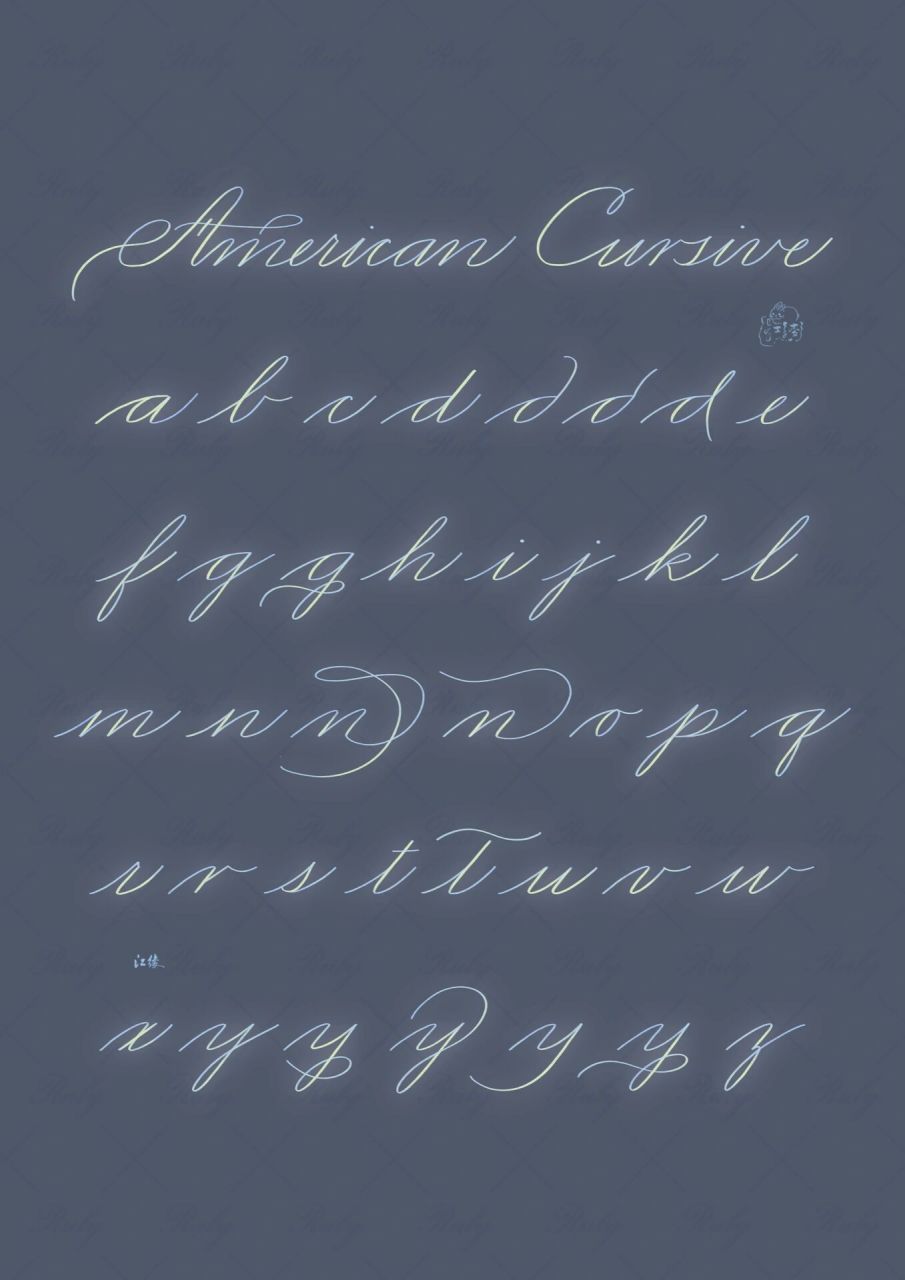 American Cursive
a b c d d d d e
f g g h i j k l
m n n n o p q
r r s t t u v w
江缘
x y y y y y z